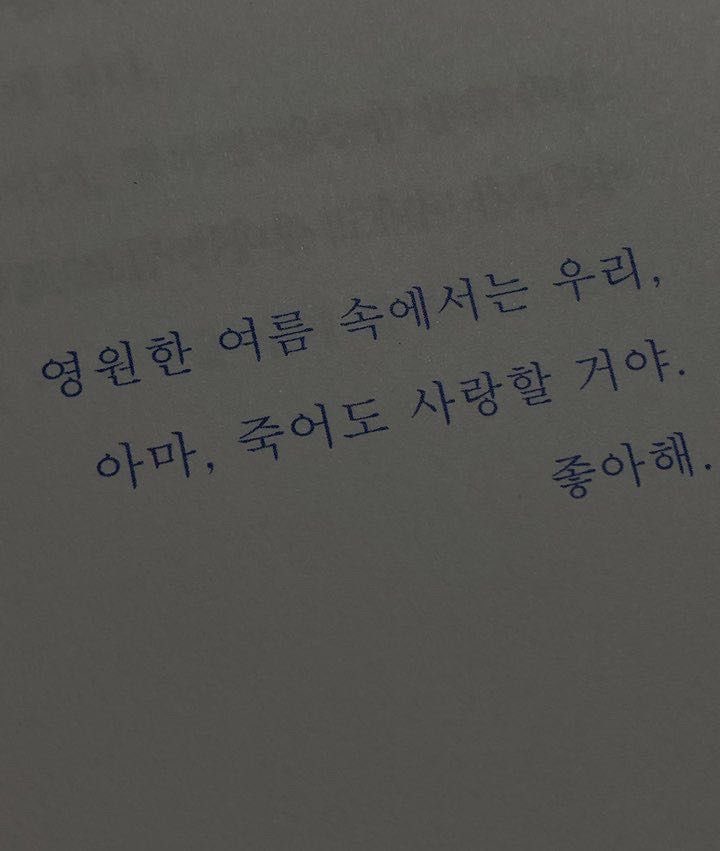 영원한 여름 속에서는 우리,
아마, 죽어도 사랑할 거야.
좋아해.